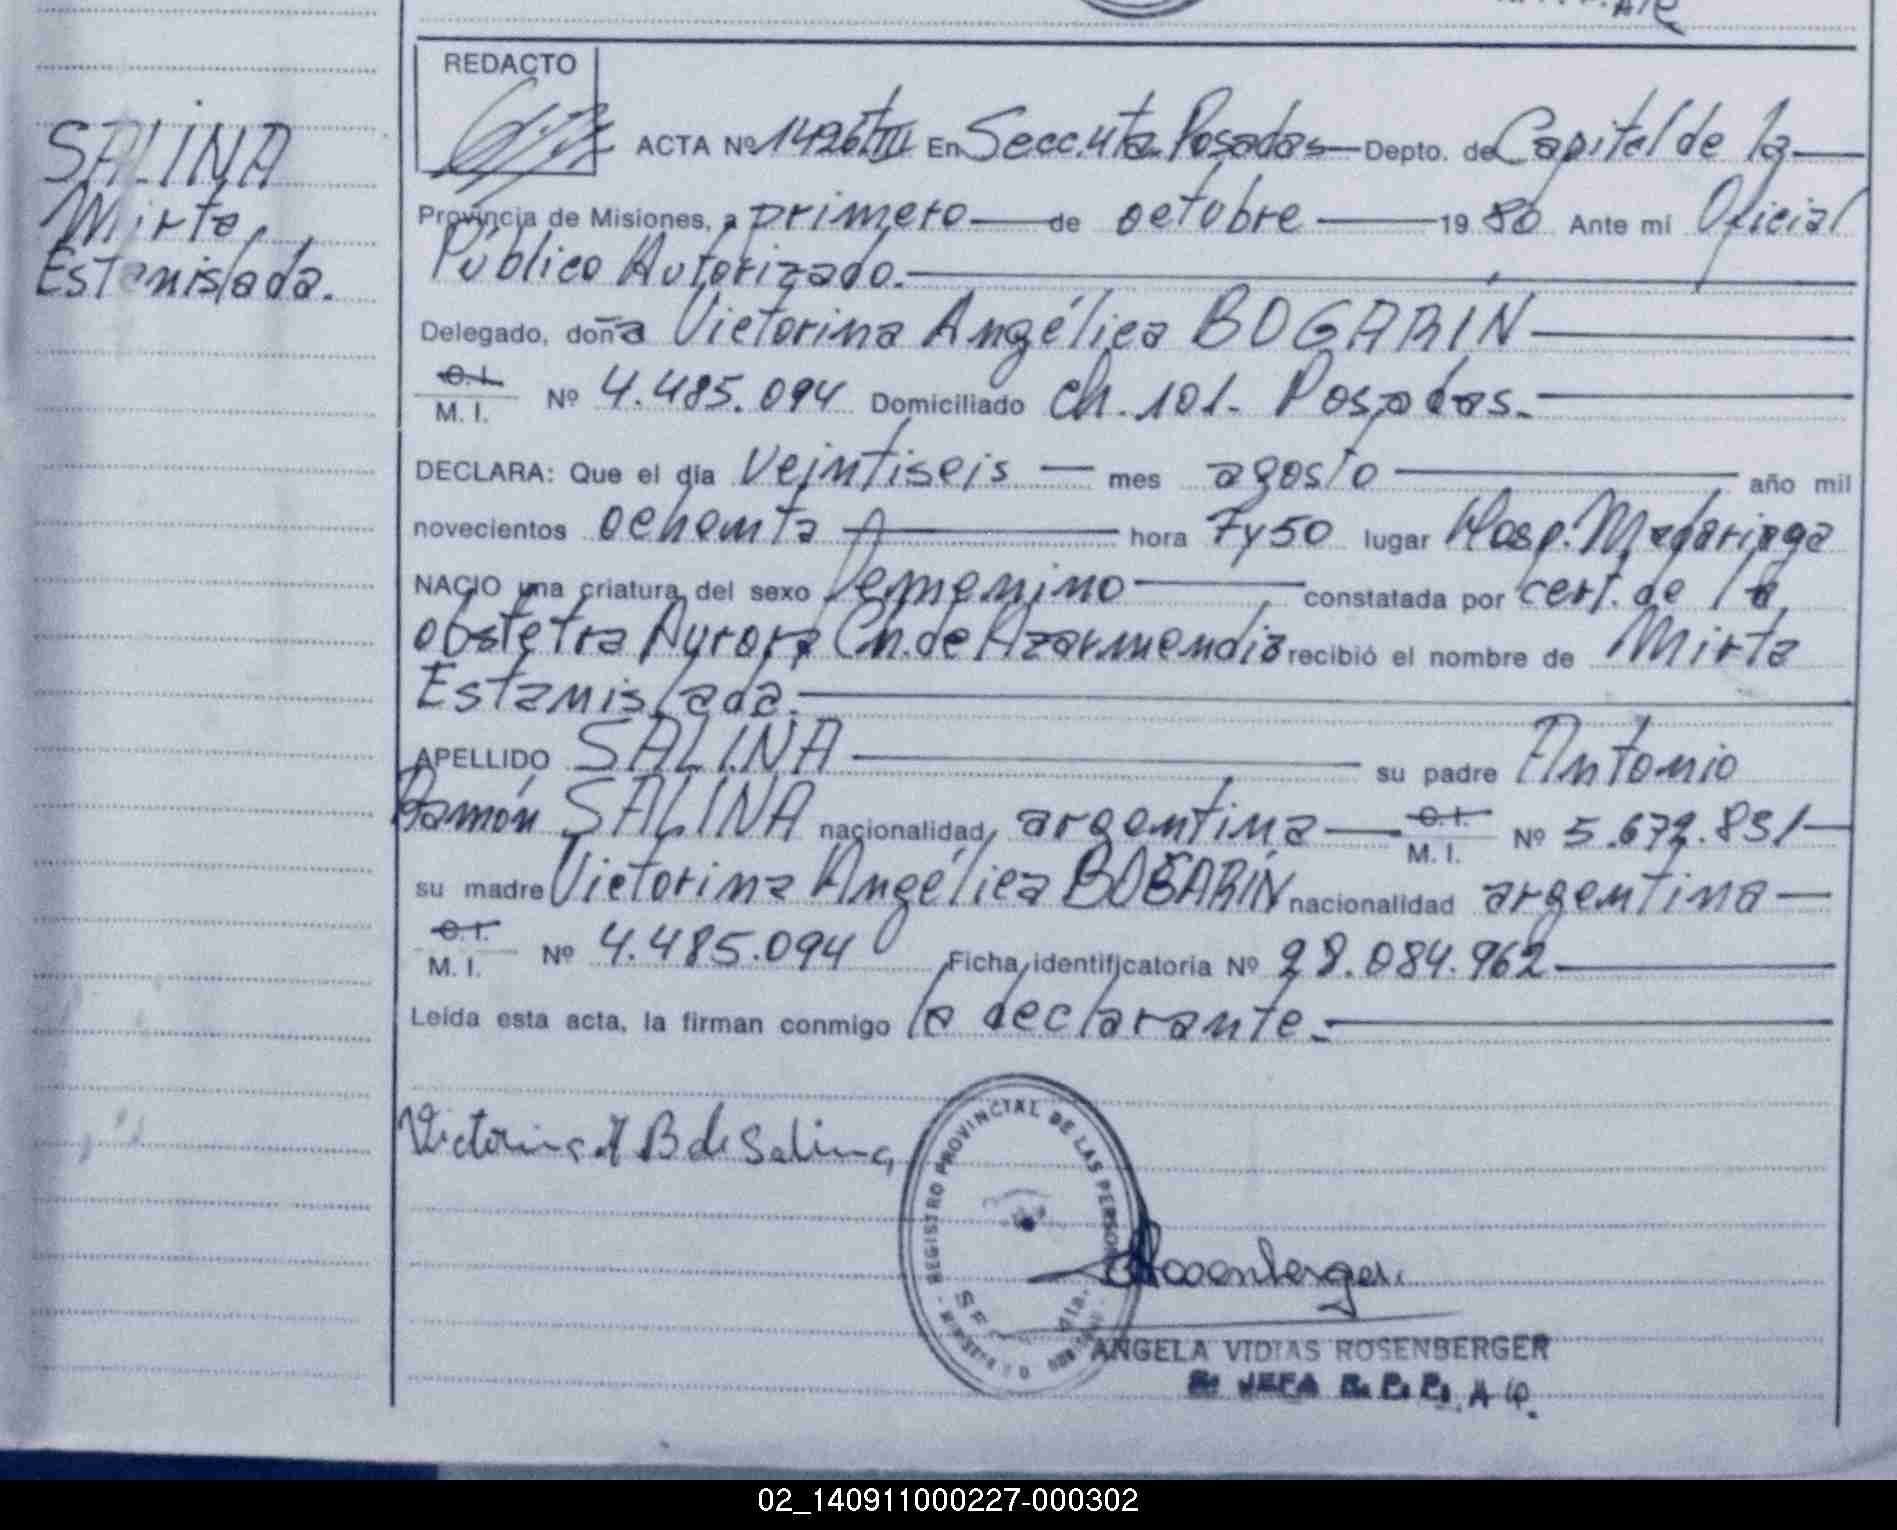 REDACTO
SALINA
Mirta
Estanislada.
ACTA Nº 1426 tºIII En Secc. 4ta. Posadas Depto. de Capital de la
Provincia de Misiones, a primero de octubre 19 80 Ante mi Oficial
Público Autorizado.
Delegado, doña Victorina Angélica BOGARÍN
C.I. M.I. Nº 4.485.094 Domiciliado Ch. 101. Posadas.
DECLARA: Que el día veintiseis mes agosto año mil
novecientos ochenta hora 7y50 lugar Hosp. Madariaga
NACIO una criatura del sexo femenino constatada por cert. de la
obstetra Aurora Ch. de Azarmendia recibió el nombre de Mirta
Estanislada.
APELLIDO SALINA su padre Antonio
Ramón SALINA nacionalidad argentina C.I. M.I. Nº 5.672.831
su madre Victorina Angélica BOGARÍN nacionalidad argentina
C.I. M.I. Nº 4.485.094 Ficha identificatoria Nº 28.084.962
Leída esta acta, la firman conmigo la declarante.
Victorina A B de Salina
REGISTRO PROVINCIAL DE LAS PERSONAS
Rosenberger
ANGELA VIDIAS ROSENBERGER
JEFA R. P. P.
02_140911000227-000302